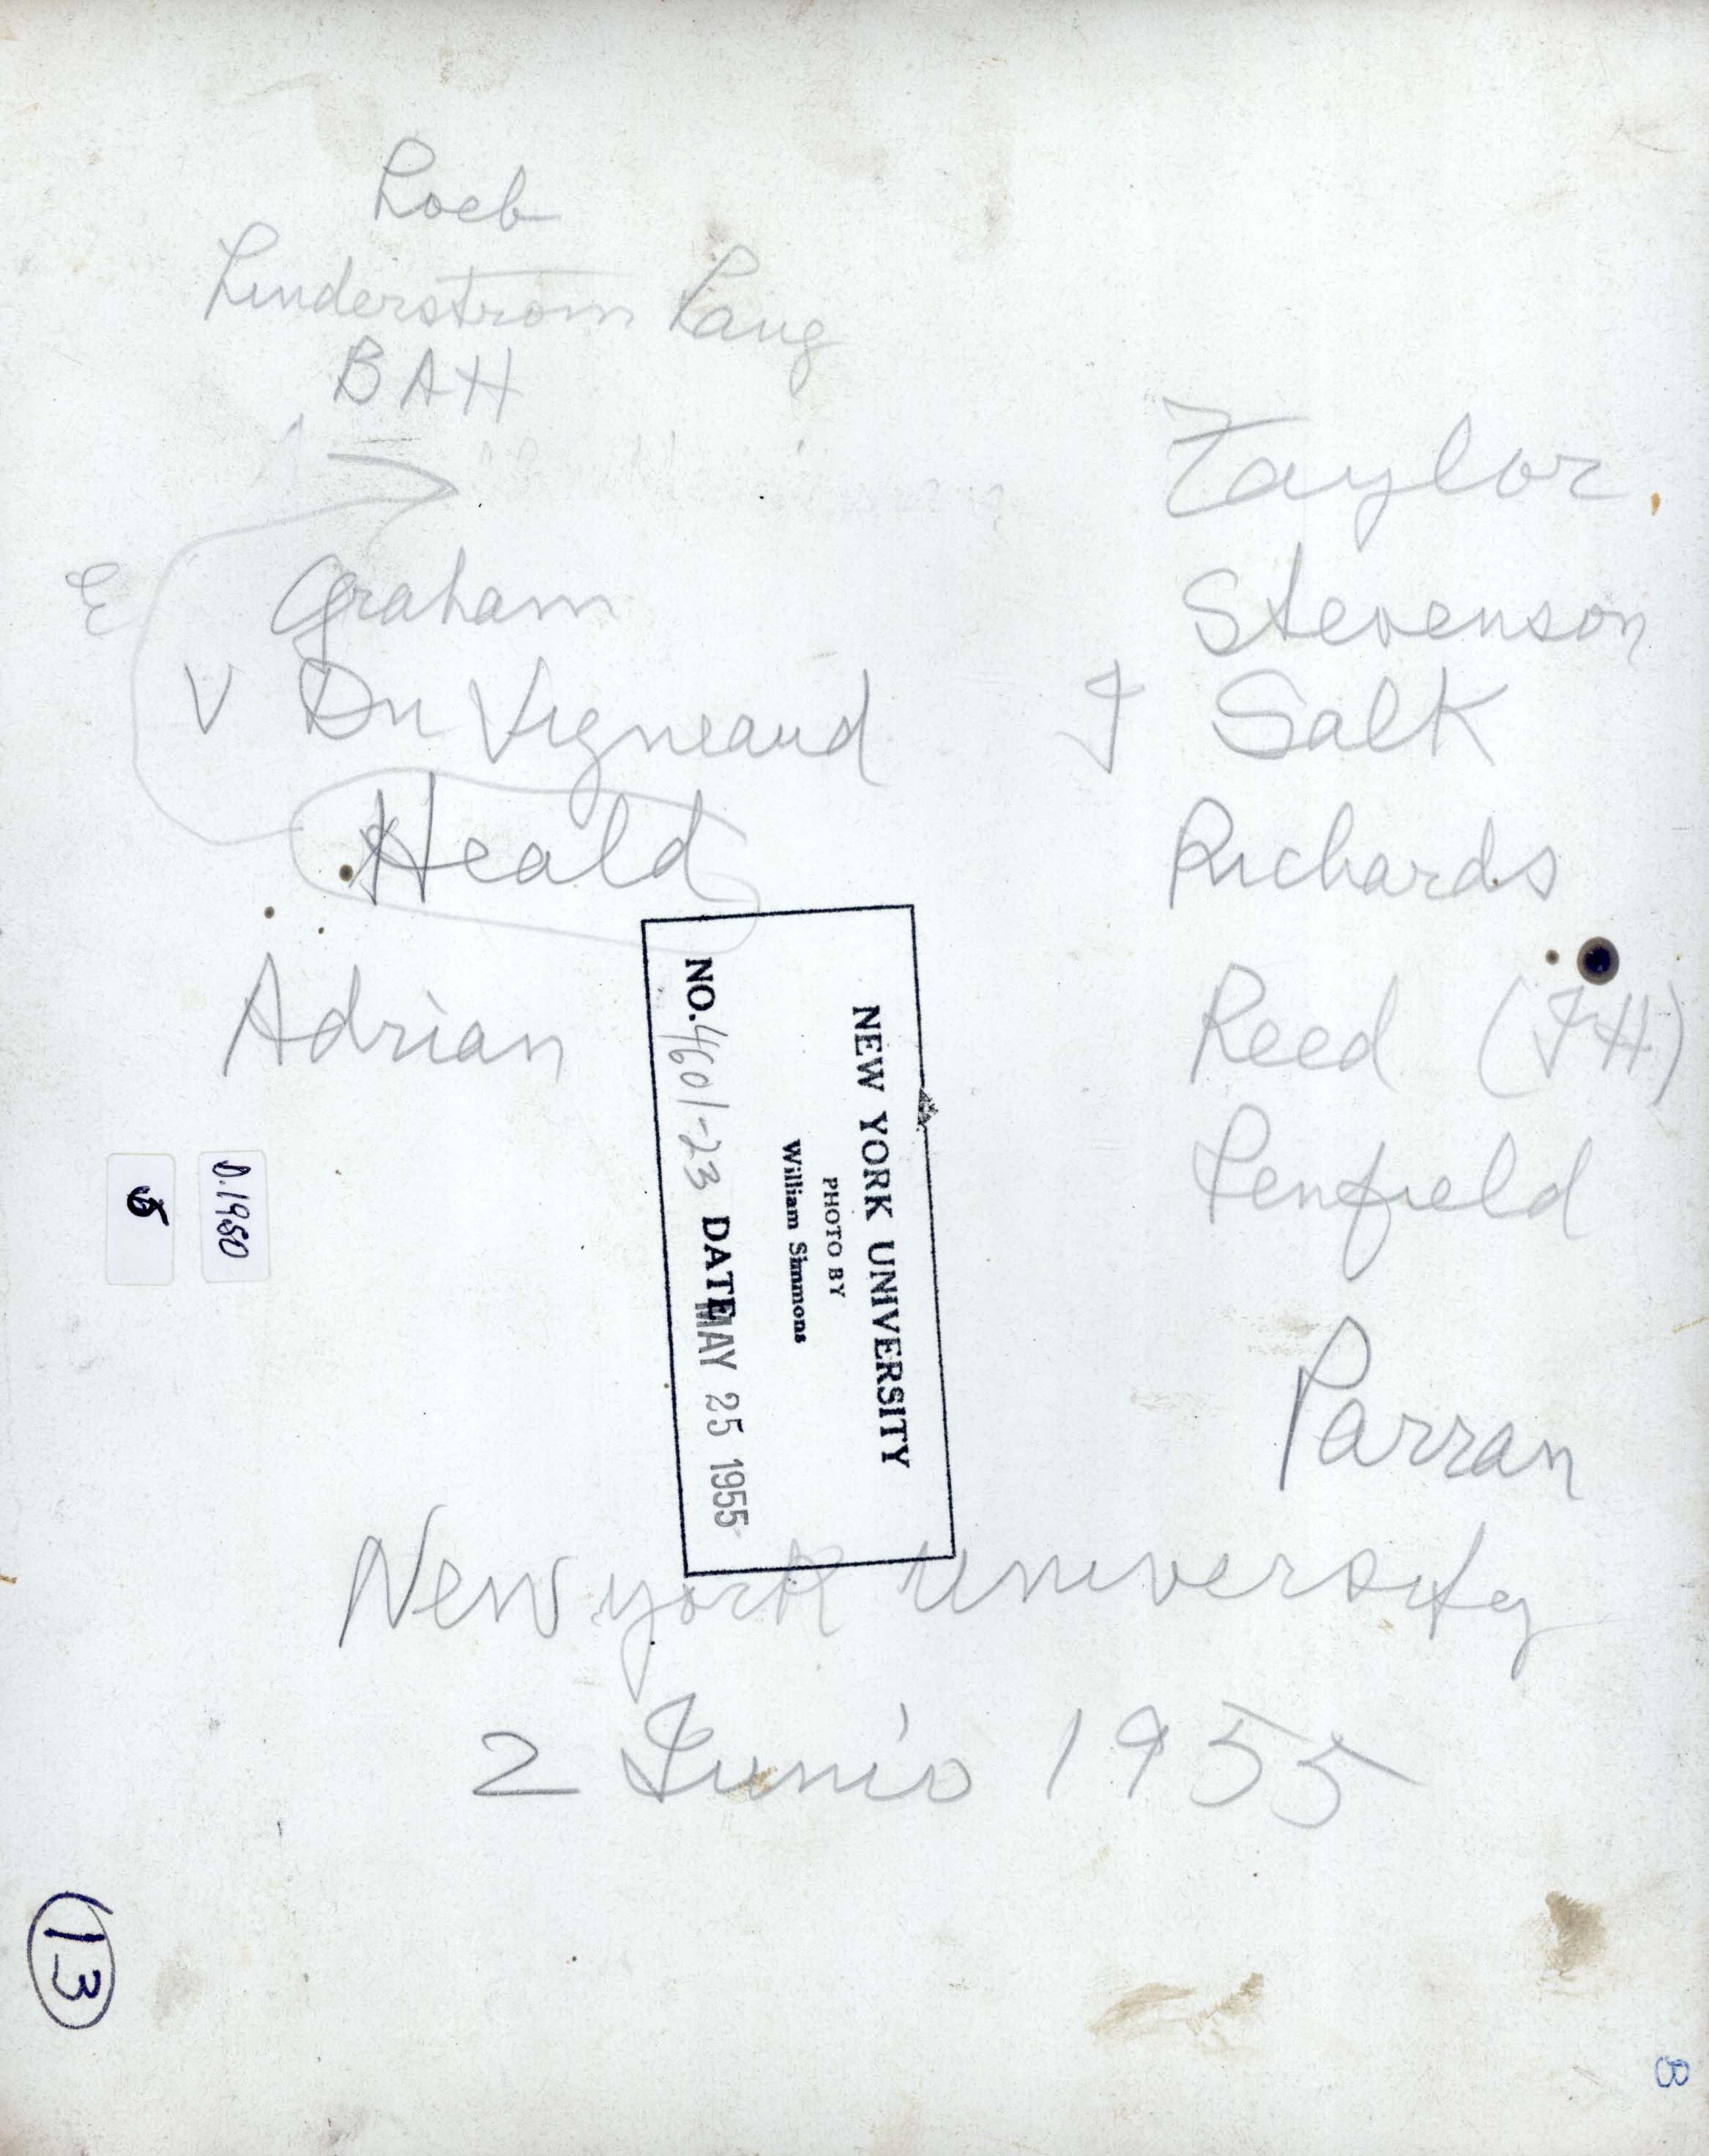 Loeb
Linderstrom Lang
BAH
E Graham
V Du Vigneaud
Heald
Adrian
Taylor
Stevenson
J Salk
Richards
Reed (JH)
Penfield
Parran
NEW YORK UNIVERSITY
PHOTO BY
William Simmons
NO. 4601-23 DATE MAY 25 1955
New york University
2 Junio 1955
D.1980
13
8